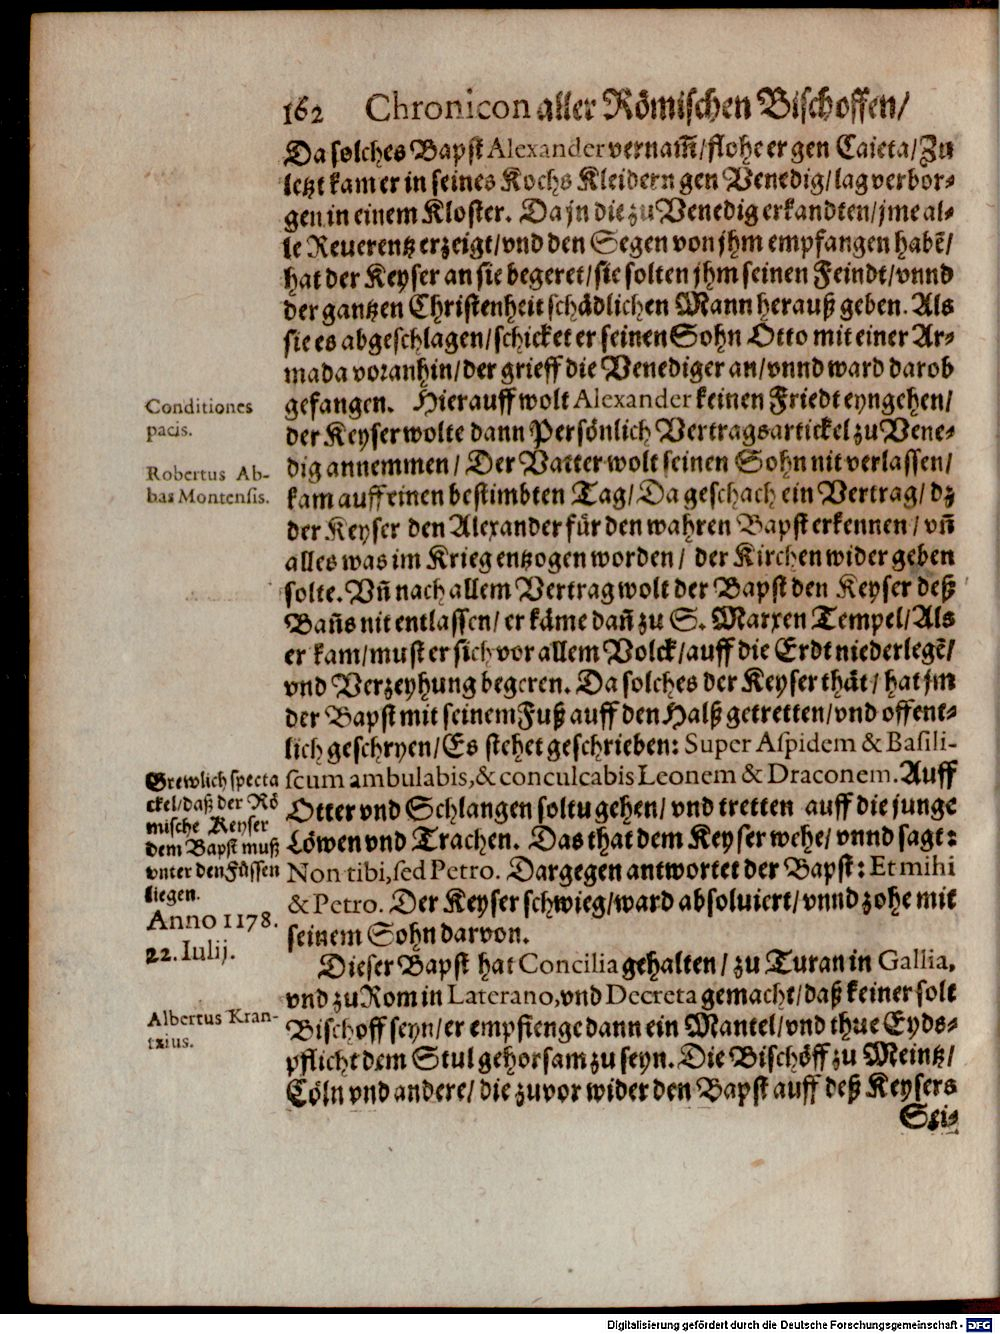 162 Chronicon aller Römischen Bischoffen/
Da solches Bapst Alexander vernam̃/flohe er gen Caieta/Zu
letzt kam er in seines Kochs Kleidern gen Venedig/lag verbor-
gen in einem Kloster. Da jn die zu Venedig erkandten/jme al-
le Reuerentz erzeigt/vnd den Segen von jhm empfangen habẽ/
hat der Keyser an sie begeret/sie solten jhm seinen Feindt/vnnd
der gantzen Christenheit schädlichen Mann herauß geben. Als
sie es abgeschlagen/schicket er seinen Sohn Otto mit einer Ar-
mada voranhin/der grieff die Venediger an/vnnd ward darob
gefangen. Hierauff wolt Alexander keinen Friedt eyngehen/
der Keyser wolte dann Persönlich Vertragsartickel zu Vene-
dig annemmen/ Der Vatter wolt seinen Sohn nit verlassen/
kam auff einen bestimbten Tag/ Da geschach ein Vertrag/ dz
der Keyser den Alexander für den wahren Bapst erkennen/ vñ
alles was im Krieg entzogen worden/ der Kirchen wider geben
solte. Vñ nach allem Vertrag wolt der Bapst den Keyser deß
Bañs nit entlassen/ er käme dañ zu S. Marxen Tempel/Als
er kam/must er sich vor allem Volck/auff die Erdt niederlegẽ/
vnd Verzeyhung begeren. Da solches der Keyser thät/ hat jm
der Bapst mit seinem Fuß auff den Halß getretten/vnd offent-
lich geschryen/Es stehet geschrieben: Super Aspidem & Basili-
scum ambulabis,& conculcabis Leonem & Draconem. Auff
Otter vnd Schlangen soltu gehen/ vnd tretten auff die junge
Löwen vnd Trachen. Das that dem Keyser wehe/ vnnd sagt:
Non tibi, sed Petro. Dargegen antwortet der Bapst: Et mihi
& Petro. Der Keyser schwieg/ward absoluiert/vnnd zohe mit
seinem Sohn darvon.
Dieser Bapst hat Concilia gehalten/ zu Turan in Gallia,
vnd zu Rom in Laterano, vnd Decreta gemacht/daß keiner solt
Bischoff seyn/er empfienge dann ein Mantel/vnd thue Eyds-
pflicht dem Stul gehorsam zu seyn. Die Bischöff zu Meintz/
Cöln vnd andere/ die zuvor wider den Bapst auff deß Keysers
Sei-
Conditiones
pacis.
Robertus Ab-
bas Montensis.
Grewlich specta
ckel/daß der Rö
mische Keyser
dem Bapst muß
vnter den Füssen
liegen.
Anno 1178.
22. Iulij.
Albertus Kran-
tzius.
Digitalisierung gefördert durch die Deutsche Forschungsgemeinschaft - DFG